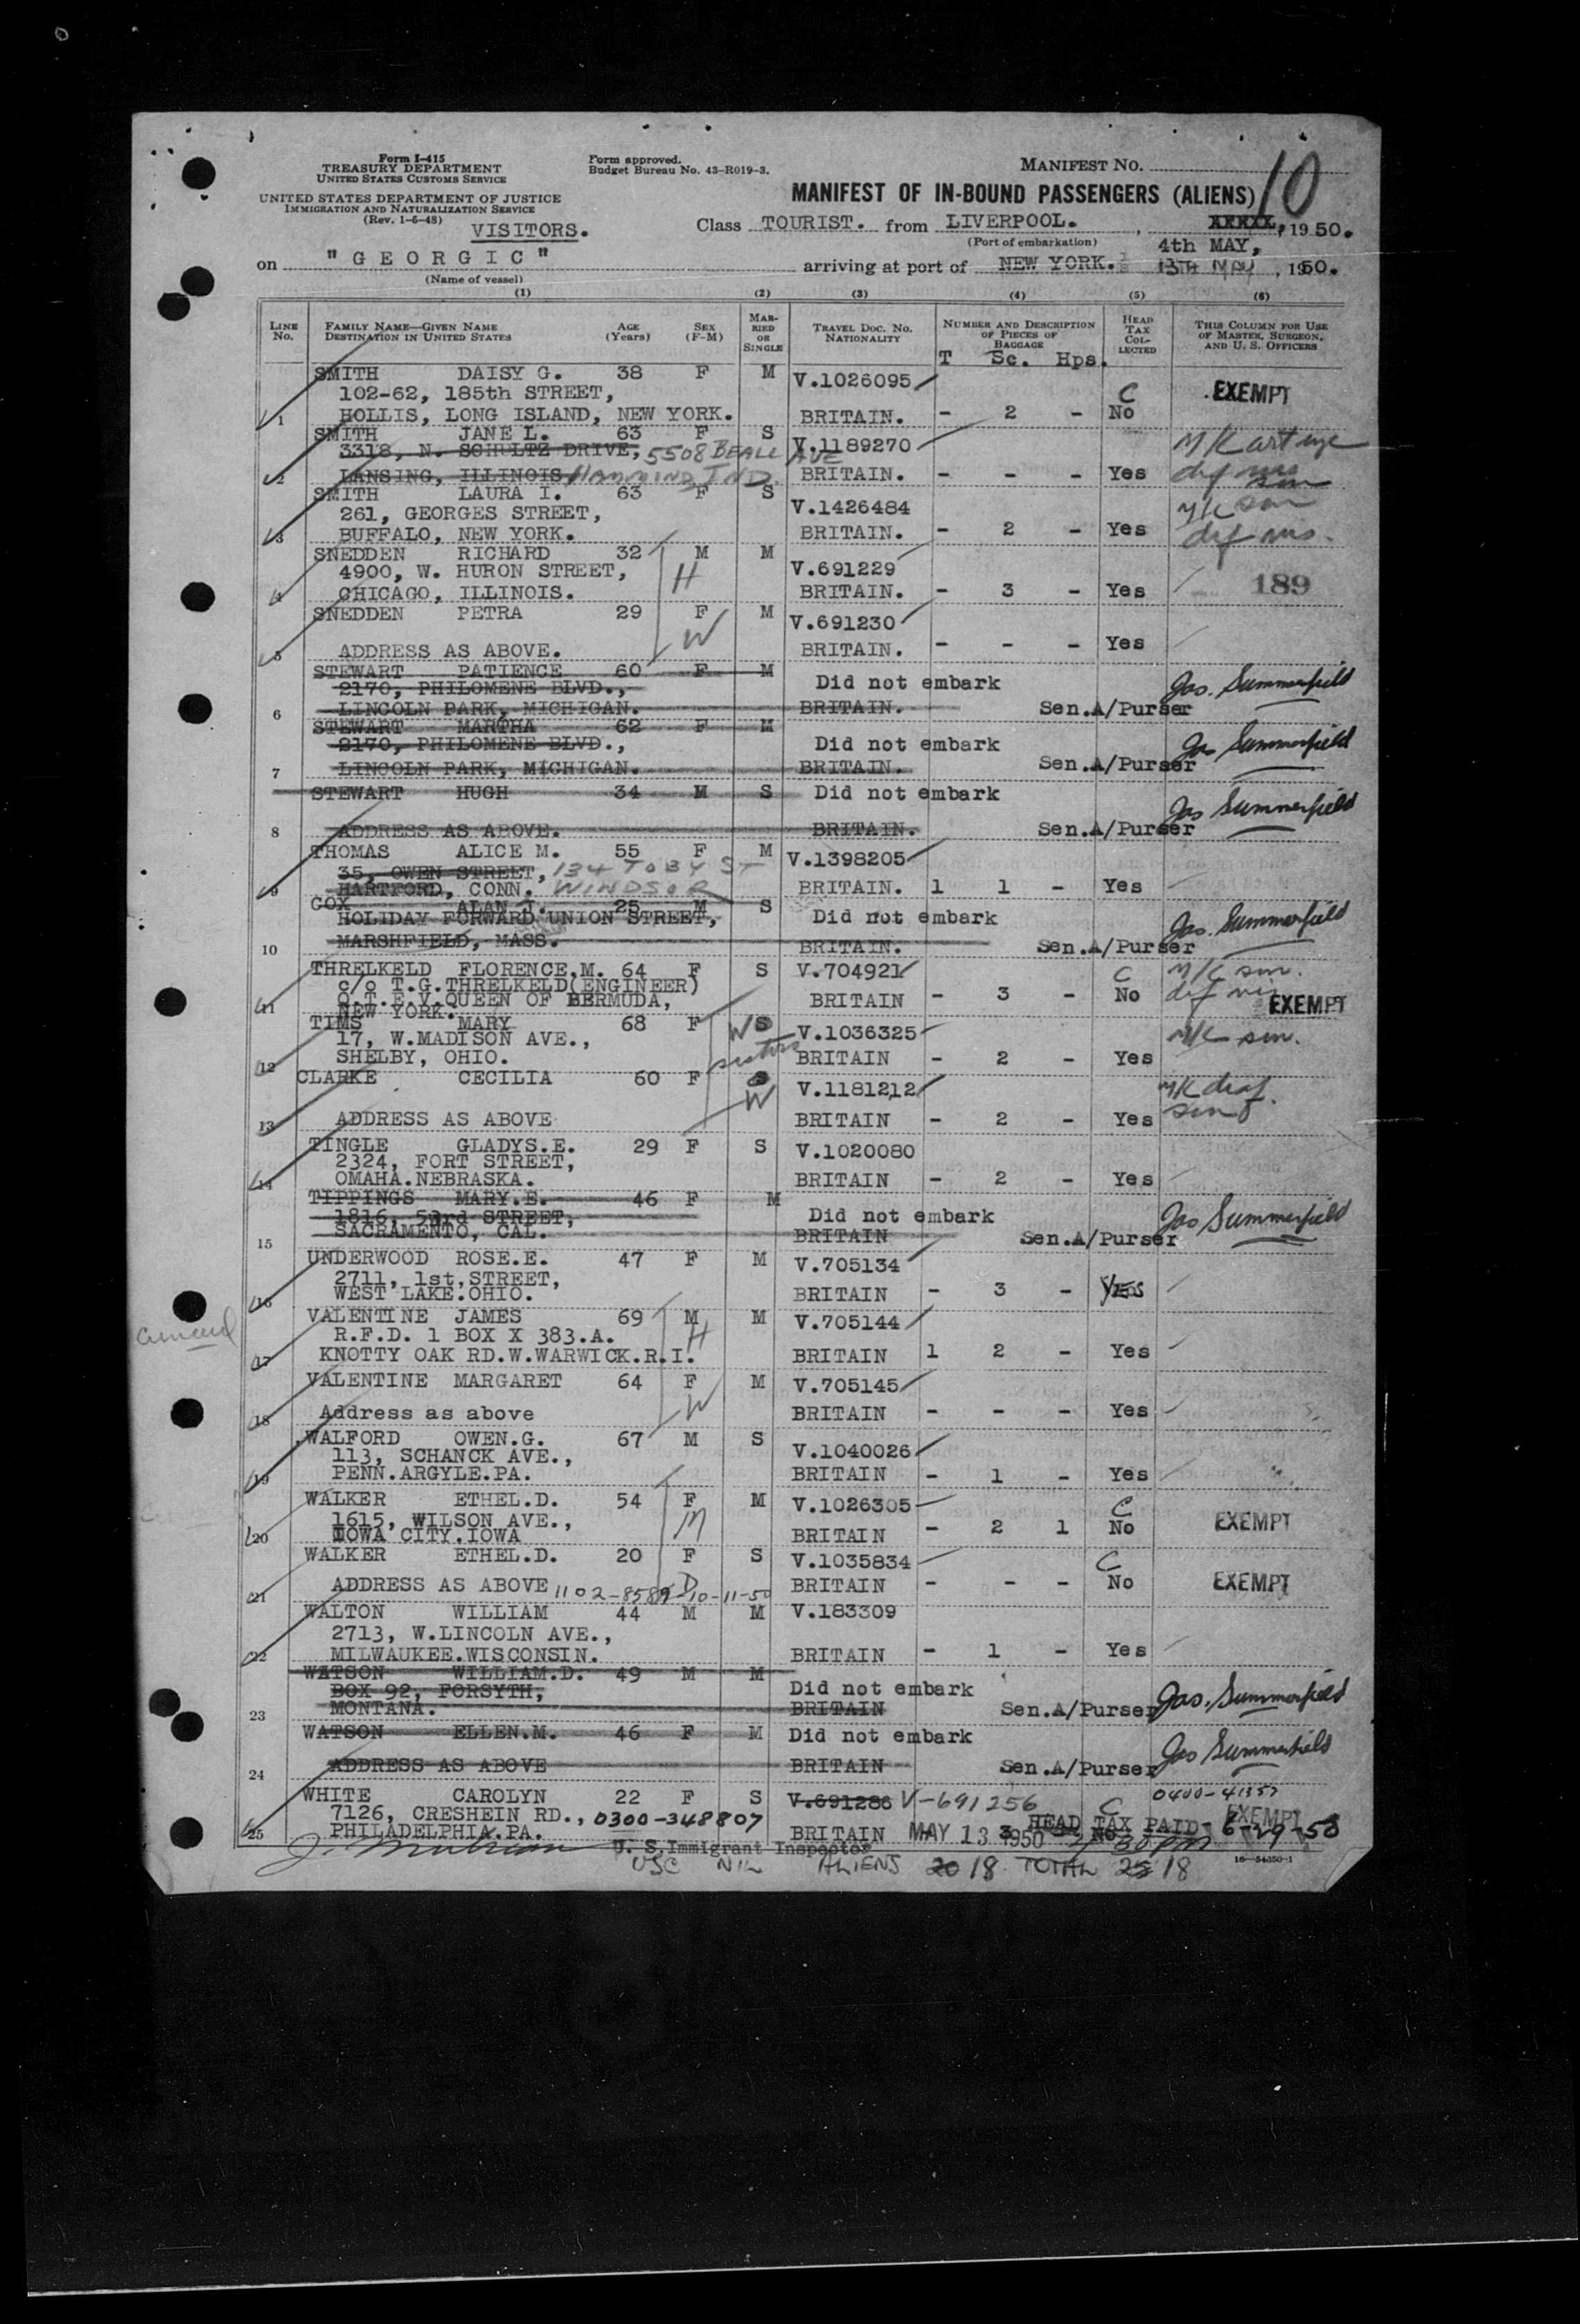 Form I-415
TREASURY DEPARTMENT
UNITED STATES CUSTOMS SERVICE
UNITED STATES DEPARTMENT OF JUSTICE
IMMIGRATION AND NATURALIZATION SERVICE
(Rev. 1-6-48)
VISITORS.
Form approved.
Budget Bureau No. 43-R019-3.
MANIFEST NO. 10
MANIFEST OF IN-BOUND PASSENGERS (ALIENS)
Class TOURIST. from LIVERPOOL. , XXXXX, 1950.
(Port of embarkation) 4th MAY,
on "GEORGIC" arriving at port of NEW YORK. 13TH MAY, 1950.
(Name of vessel)
(1) (2) (3) (4) (5) (6)
LINE No. FAMILY NAME—GIVEN NAME DESTINATION IN UNITED STATES AGE (Years) SEX (F-M) MARRIED OR SINGLE TRAVEL DOC. NO. NATIONALITY NUMBER AND DESCRIPTION OF PIECES OF BAGGAGE HEAD TAX COLLECTED THIS COLUMN FOR USE OF MASTER, SURGEON, AND U. S. OFFICERS
T Sc. Hps.
SMITH DAISY G. 38 F M V.1026095
102-62, 185th STREET, C EXEMPT
1 HOLLIS, LONG ISLAND, NEW YORK. BRITAIN. - 2 - No
SMITH JANE L. 63 F S V.1189270
3318, N. SCHULTZ DRIVE, 5508 BEALL AVE
2 LANSING, ILLINOIS HAMMOND, IND. BRITAIN. - - - Yes
SMITH LAURA I. 63 F S V.1426484
261, GEORGES STREET,
3 BUFFALO, NEW YORK. BRITAIN. - 2 - Yes
SNEDDEN RICHARD 32 M M V.691229
4900, W. HURON STREET, H
4 CHICAGO, ILLINOIS. BRITAIN. - 3 - Yes 189
SNEDDEN PETRA 29 F M V.691230
W
5 ADDRESS AS ABOVE. BRITAIN. - - - Yes
STEWART PATIENCE 60 F M Did not embark Jas. Summerfield
2170, PHILOMENE BLVD.,
6 LINCOLN PARK, MICHIGAN. BRITAIN. Sen.A/Purser
STEWART MARTHA 62 F M Did not embark Jas Summerfield
2170, PHILOMENE BLVD.,
7 LINCOLN PARK, MICHIGAN. BRITAIN. Sen.A/Purser
STEWART HUGH 34 M S Did not embark Jas Summerfield
8 ADDRESS AS ABOVE. BRITAIN. Sen.A/Purser
THOMAS ALICE M. 55 F M V.1398205
35, OWEN STREET, 134 TOBY ST
9 HARTFORD, CONN. WINDSOR BRITAIN. 1 1 - Yes
COX ALAN J. 25 M S Did not embark Jas. Summerfield
HOLIDAY FORWARD UNION STREET,
10 MARSHFIELD, MASS. BRITAIN. Sen.A/Purser
THRELKELD FLORENCE,M. 64 F S V.704921 C
c/o T.G.THRELKELD(ENGINEER)
11 Q.T.E.V.QUEEN OF BERMUDA, BRITAIN - 3 - No EXEMPT
NEW YORK.
TIMS MARY 68 F W S V.1036325
17, W.MADISON AVE., sisters
12 SHELBY, OHIO. BRITAIN - 2 - Yes
CLARKE CECILIA 60 F S V.1181212
W
13 ADDRESS AS ABOVE BRITAIN - 2 - Yes
TINGLE GLADYS.E. 29 F S V.1020080
2324, FORT STREET,
14 OMAHA.NEBRASKA. BRITAIN - 2 - Yes
TIPPINGS MARY.E. 46 F M Did not embark Jas Summerfield
1816, 53rd STREET,
15 SACRAMENTO, CAL. BRITAIN Sen.A/Purser
UNDERWOOD ROSE.E. 47 F M V.705134
2711, 1st,STREET,
16 WEST LAKE.OHIO. BRITAIN - 3 - Yes
VALENTINE JAMES 69 M M V.705144
R.F.D. 1 BOX X 383.A. H
17 KNOTTY OAK RD.W.WARWICK.R.I. BRITAIN 1 2 - Yes
VALENTINE MARGARET 64 F M V.705145
W
18 Address as above BRITAIN - - - Yes
WALFORD OWEN.G. 67 M S V.1040026
113, SCHANCK AVE.,
19 PENN.ARGYLE.PA. BRITAIN - 1 - Yes
WALKER ETHEL.D. 54 F M V.1026305 C
1615, WILSON AVE., M
20 IOWA CITY.IOWA BRITAIN - 2 1 No EXEMPT
WALKER ETHEL.D. 20 F S V.1035834 C
21 ADDRESS AS ABOVE D BRITAIN - - - No EXEMPT
WALTON WILLIAM 44 M M V.183309
2713, W.LINCOLN AVE.,
22 MILWAUKEE.WISCONSIN. BRITAIN - 1 - Yes
WATSON WILLIAM.D. 49 M M Did not embark Jas. Summerfield
BOX 92, FORSYTH,
23 MONTANA. BRITAIN Sen.A/Purser
WATSON ELLEN.M. 46 F M Did not embark Jas Summerfield
24 ADDRESS AS ABOVE BRITAIN Sen.A/Purser
WHITE CAROLYN 22 F S V.691286 V-691256 C
7126, CRESHEIN RD., 0300-348807 HEAD TAX PAID- 6-29-50 EXEMPT
25 PHILADELPHIA.PA. BRITAIN MAY 13 1950 3 No
U. S. Immigrant Inspector 16-54350-1
USC NIL ALIENS 20 18 TOTAL 25 18